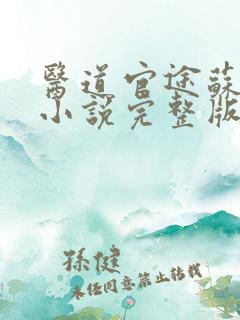 醫道官途蘇
小說完整版
孫健
未經同意禁止轉載